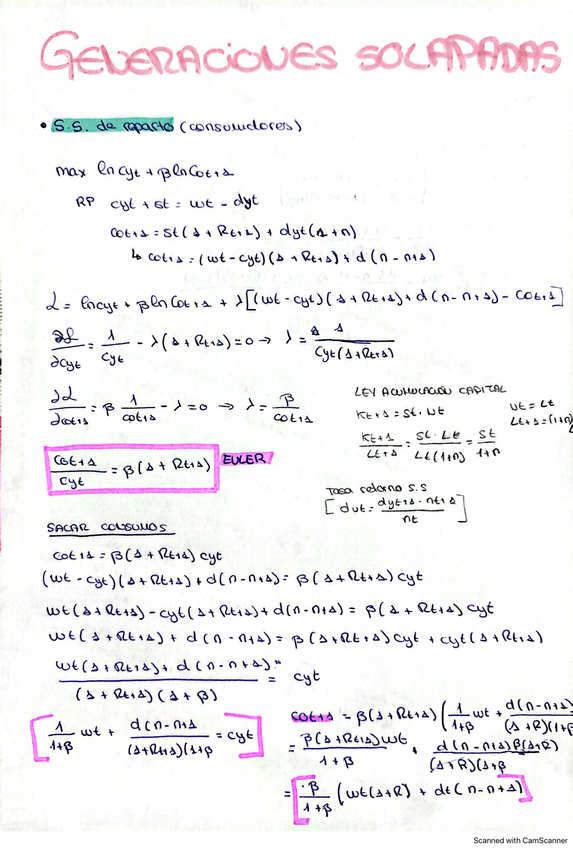 GENERACIONES SOLAPADAS
• S.S. de reparto (consumidores)
max ln cyt + β ln cot+1
RP cyt + st = wt - dyt
cot+1 = st(1 + Rt+1) + dyt(1+n)
↳ cot+1 = (wt - cyt)(1 + Rt+1) + d(n - rt+1)
L = ln cyt + β ln cot+1 + λ[(wt - cyt)(1 + Rt+1) + d(n - rt+1) - cot+1]
∂L/∂cyt = 1/cyt - λ(1 + Rt+1) = 0 → λ = 1/(cyt(1+Rt+1))
∂L/∂cot+1 = β 1/cot+1 - λ = 0 → λ = β/cot+1
LEY ACUMULACIÓN CAPITAL
Kt+1 = st · Nt
Nt = Lt
Lt+1 = (1+n)
Kt+1/Lt+1 = st · Lt/Lt(1+n) = st/1+n
cot+1/cyt = β(1 + Rt+1) EULER
Tasa retorno S.S
[dut = dyt+1 · nt+1/nt]
SACAR CONSUMOS
cot+1 = β(1 + Rt+1) cyt
(wt - cyt)(1 + Rt+1) + d(n - rt+1) = β(1 + Rt+1) cyt
wt(1 + Rt+1) - cyt(1 + Rt+1) + d(n - rt+1) = β(1 + Rt+1) cyt
wt(1 + Rt+1) + d(n - rt+1) = β(1 + Rt+1) cyt + cyt(1 + Rt+1)
wt(1 + Rt+1) + d(n - rt+1)/(1 + Rt+1)(1 + β) = cyt
[1/1+β wt + d(n - rt+1/(1+Rt+1)(1+β = cyt]
cot+1 = β(1 + Rt+1)(1/1+β wt + d(n - rt+1)/(1+R)(1+β
= β(1+Rt+1)wt/1+β + d(n - rt+1)β(1+R)/(1+R)(1+β
= [β/1+β (wt(1+R) + dt(n - rt+1)]
Scanned with CamScanner